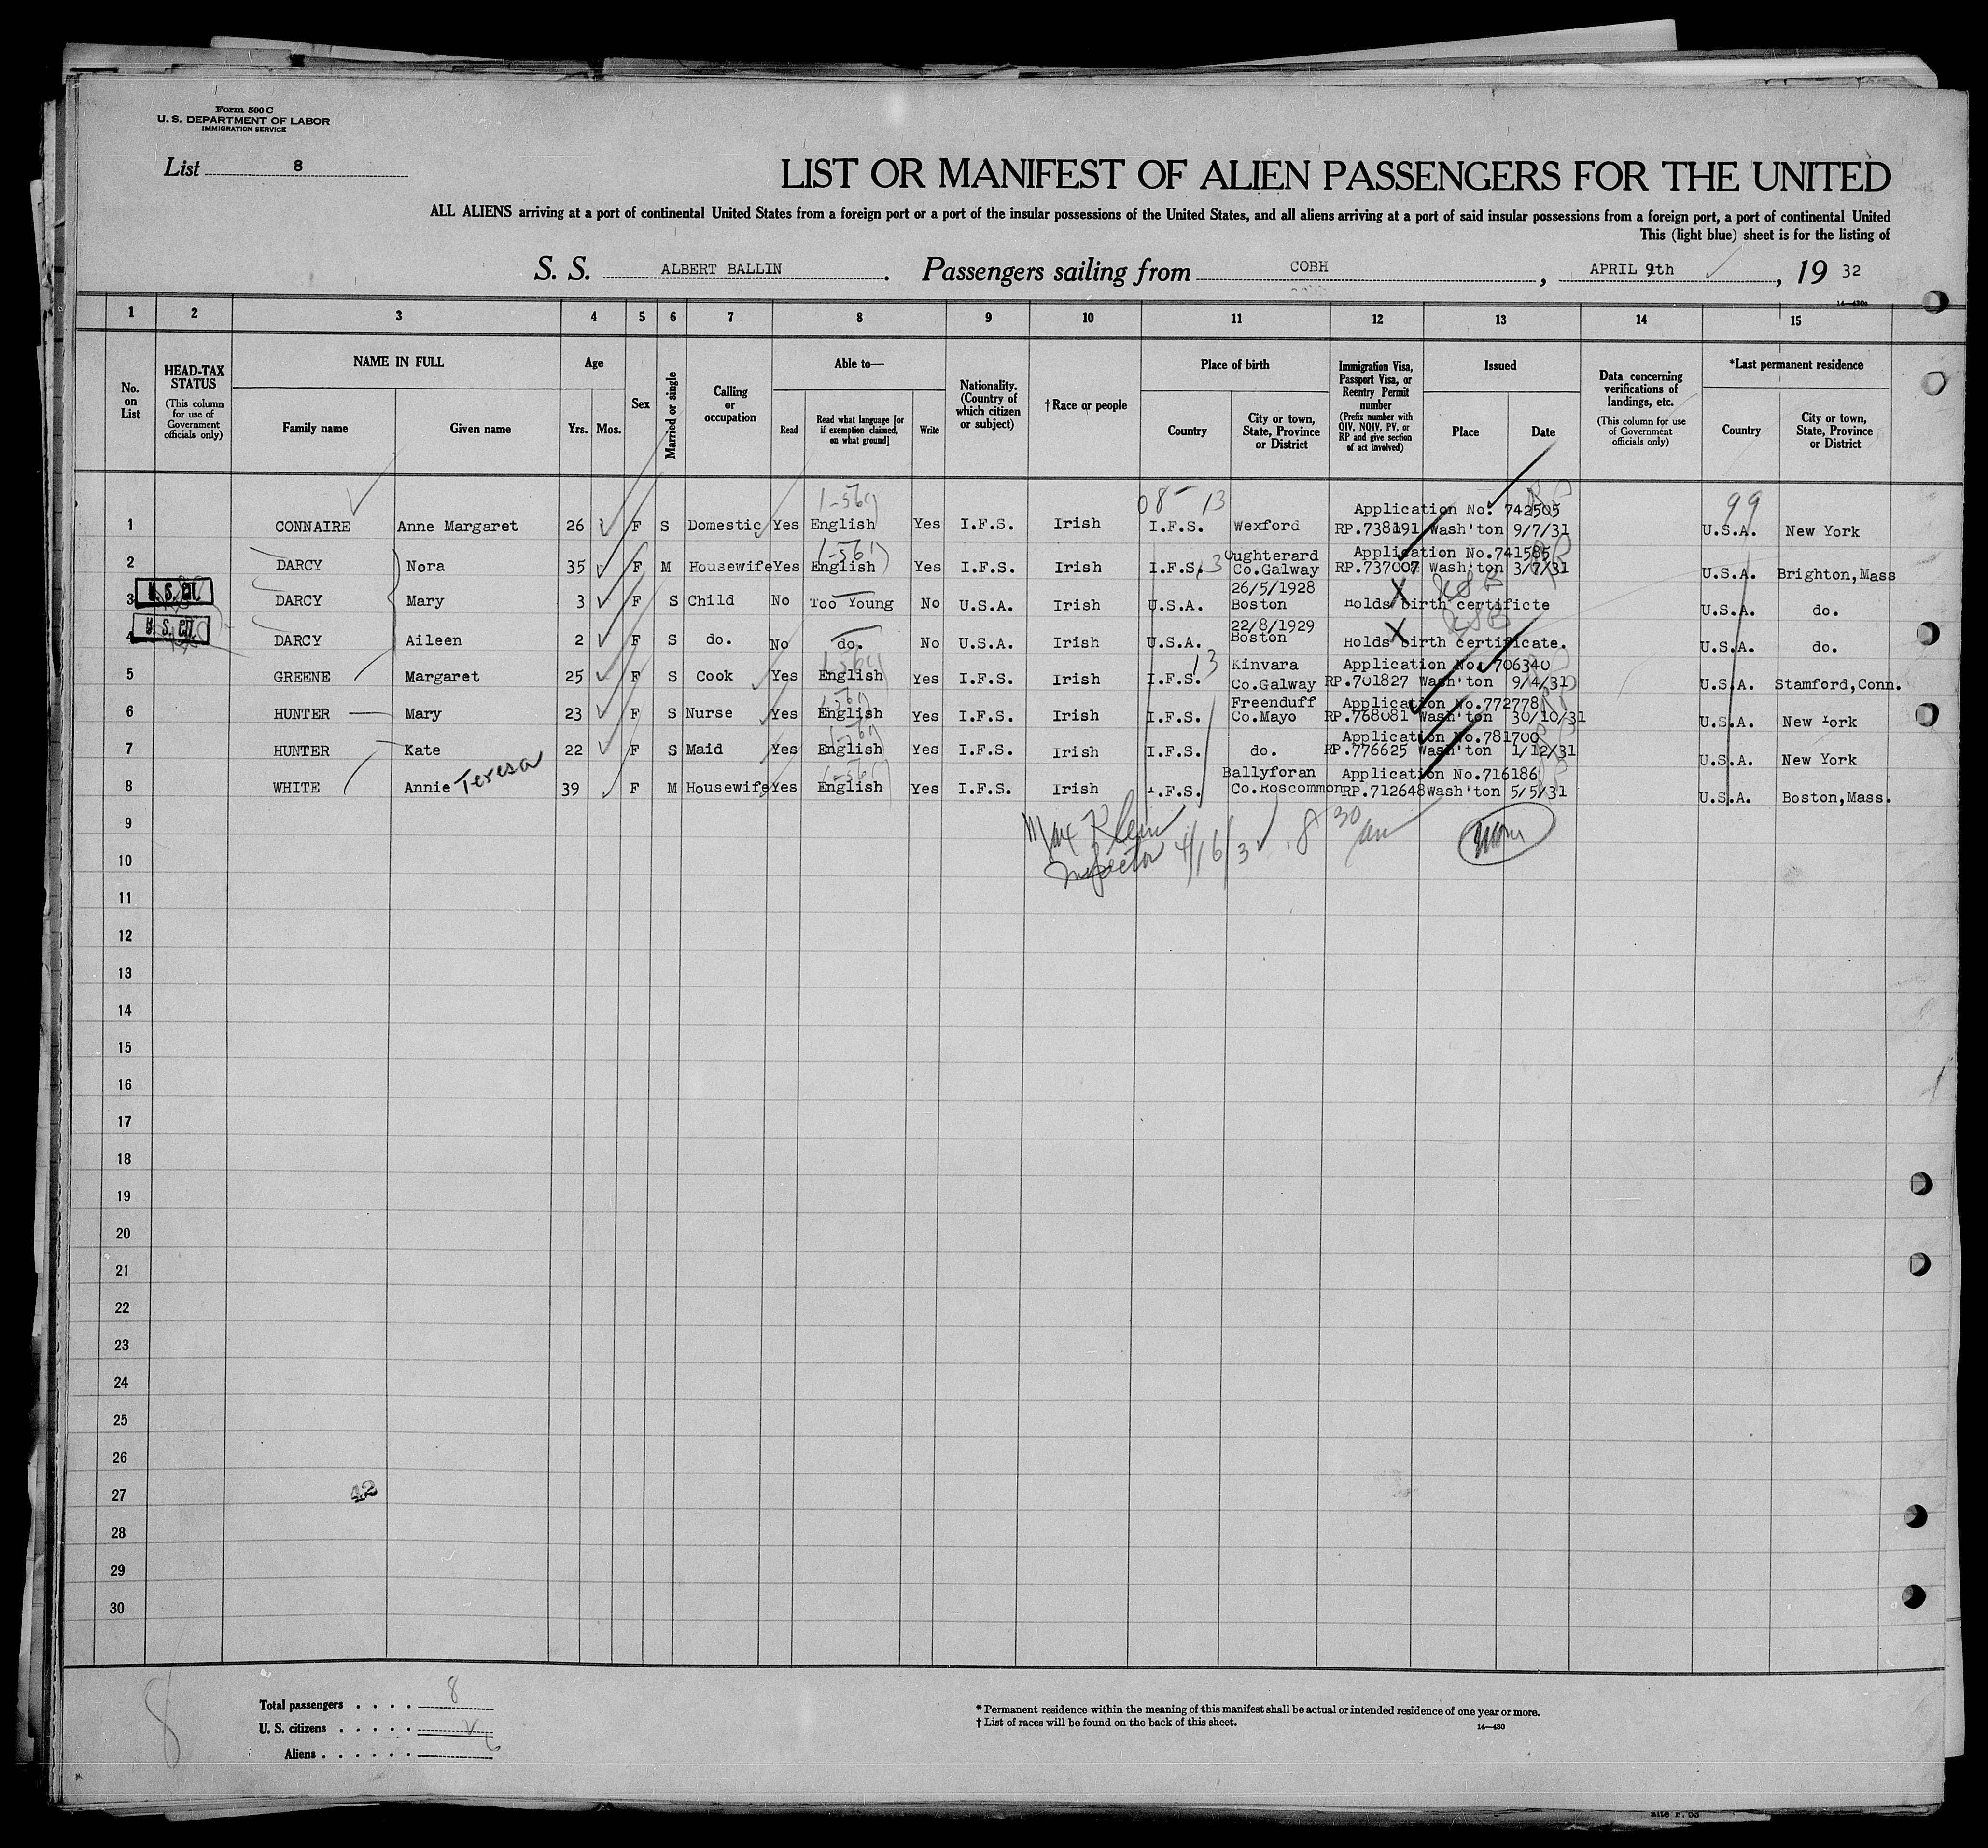 Form 500 C
U. S. DEPARTMENT OF LABOR
IMMIGRATION SERVICE
List 8
LIST OR MANIFEST OF ALIEN PASSENGERS FOR THE UNITED
ALL ALIENS arriving at a port of continental United States from a foreign port or a port of the insular possessions of the United States, and all aliens arriving at a port of said insular possessions from a foreign port, a port of continental United
This (light blue) sheet is for the listing of
S. S. ALBERT BALLIN. Passengers sailing from COBH, APRIL 9th, 19 32
14—430a
1 2 3 4 5 6 7 8 9 10 11 12 13 14 15
No. on List
HEAD-TAX STATUS (This column for use of Government officials only)
NAME IN FULL
Family name Given name
Age
Yrs. Mos.
Sex
Married or single
Calling or occupation
Able to—
Read Read what language [or if exemption claimed, on what ground] Write
Nationality. (Country of which citizen or subject)
†Race or people
Place of birth
Country City or town, State, Province or District
Immigration Visa, Passport Visa, or Reentry Permit number (Prefix number with QIV, NQIV, PV, or RP and give section of act involved)
Issued
Place Date
Data concerning verifications of landings, etc. (This column for use of Government officials only)
*Last permanent residence
Country City or town, State, Province or District
08 13 99
Application No. 742505
1 CONNAIRE Anne Margaret 26 F S Domestic Yes English Yes I.F.S. Irish I.F.S. Wexford RP.738191 Wash'ton 9/7/31 U.S.A. New York
Oughterard Application No.741585
2 DARCY Nora 35 F M Housewife Yes English Yes I.F.S. Irish I.F.S. Co.Galway RP.737007 Wash'ton 3/7/31 U.S.A. Brighton,Mass
U. S. CIT.
26/5/1928
3 DARCY Mary 3 F S Child No Too Young No U.S.A. Irish U.S.A. Boston Holds birth certificte U.S.A. do.
U. S. CIT.
22/8/1929
4 DARCY Aileen 2 F S do. No do. No U.S.A. Irish U.S.A. Boston Holds birth certificate. U.S.A. do.
13 Kinvara Application No. 706340
5 GREENE Margaret 25 F S Cook Yes English Yes I.F.S. Irish I.F.S. Co.Galway RP.701827 Wash'ton 9/4/31 U.S.A. Stamford,Conn.
Freenduff Application No.772778
6 HUNTER Mary 23 F S Nurse Yes English Yes I.F.S. Irish I.F.S. Co.Mayo RP.768081 Wash'ton 30/10/31 U.S.A. New York
Application No.781700
7 HUNTER Kate 22 F S Maid Yes English Yes I.F.S. Irish I.F.S. do. RP.776625 Wash'ton 1/12/31 U.S.A. New York
Ballyforan Application No.716186
8 WHITE Annie Teresa 39 F M Housewife Yes English Yes I.F.S. Irish I.F.S. Co.Roscommon RP.712648 Wash'ton 5/5/31 U.S.A. Boston,Mass.
9
Max Klein
Inspector 4/16/3 8 30 am
10
11
12
13
14
15
16
17
18
19
20
21
22
23
24
25
26
27 42
28
29
30
8
Total passengers . . . . 8
U. S. citizens . . . . .
Aliens . . . . . . 6
* Permanent residence within the meaning of this manifest shall be actual or intended residence of one year or more.
† List of races will be found on the back of this sheet.
14—430